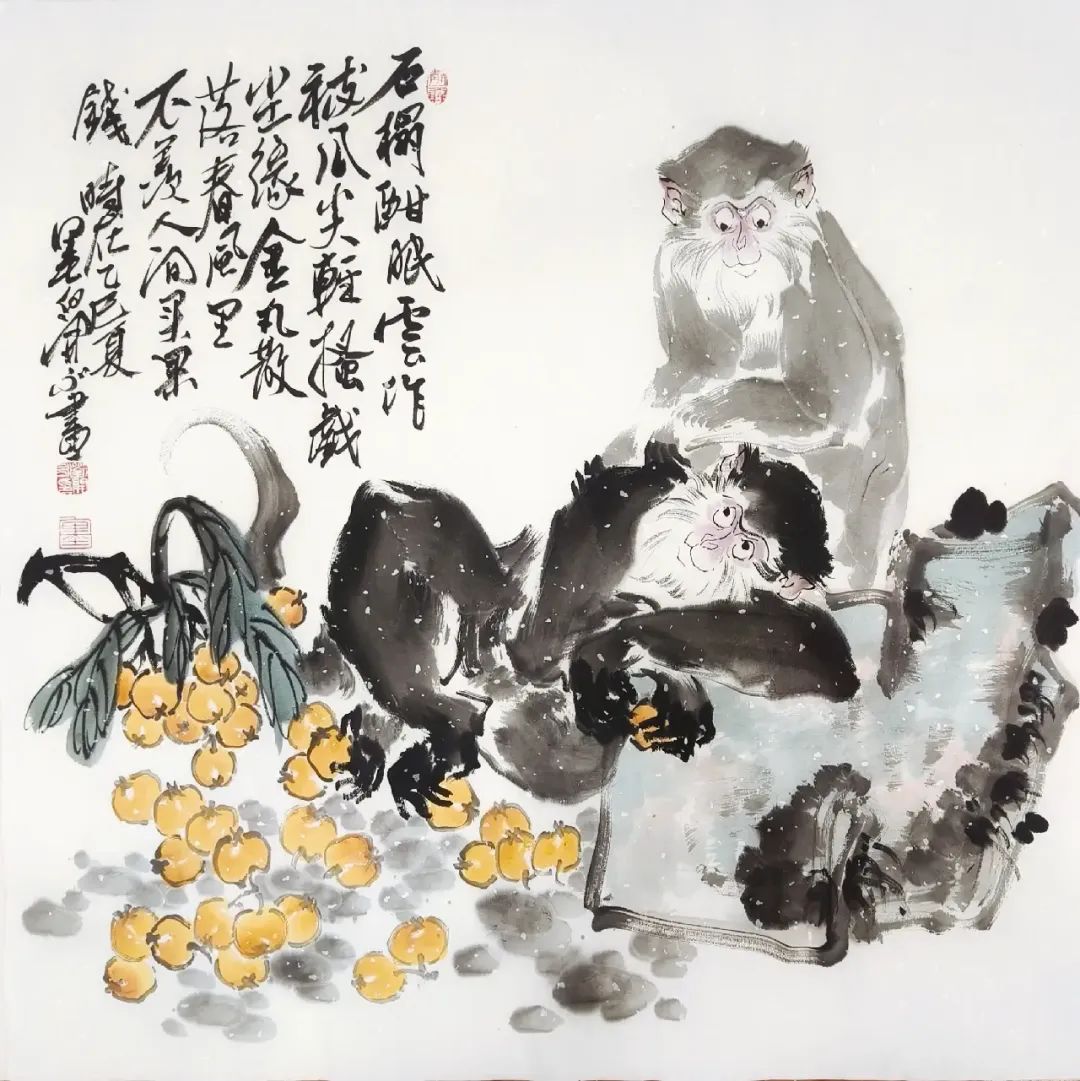 石榻酣眠雲作
被爪尖輕搔戲
尘緣金丸散
落春風里
不羡人间买果
錢 時在乙巳夏
墨 畫